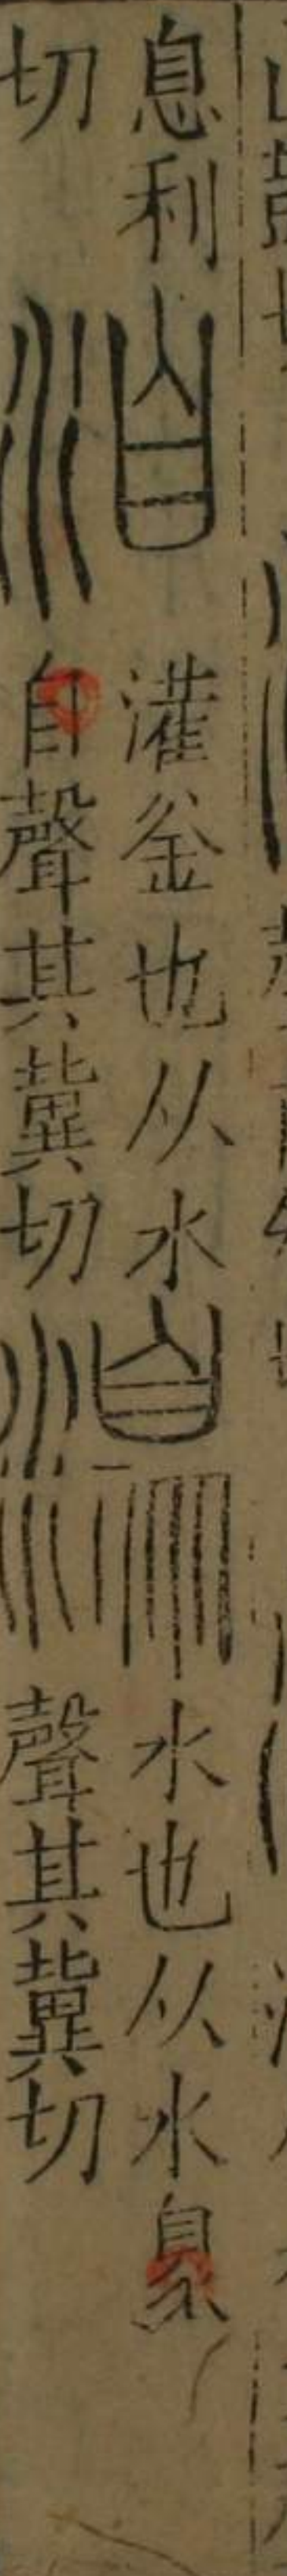 息利
切
洎
灌釜也从水
自聲其冀切
水也从水臮
聲其冀切